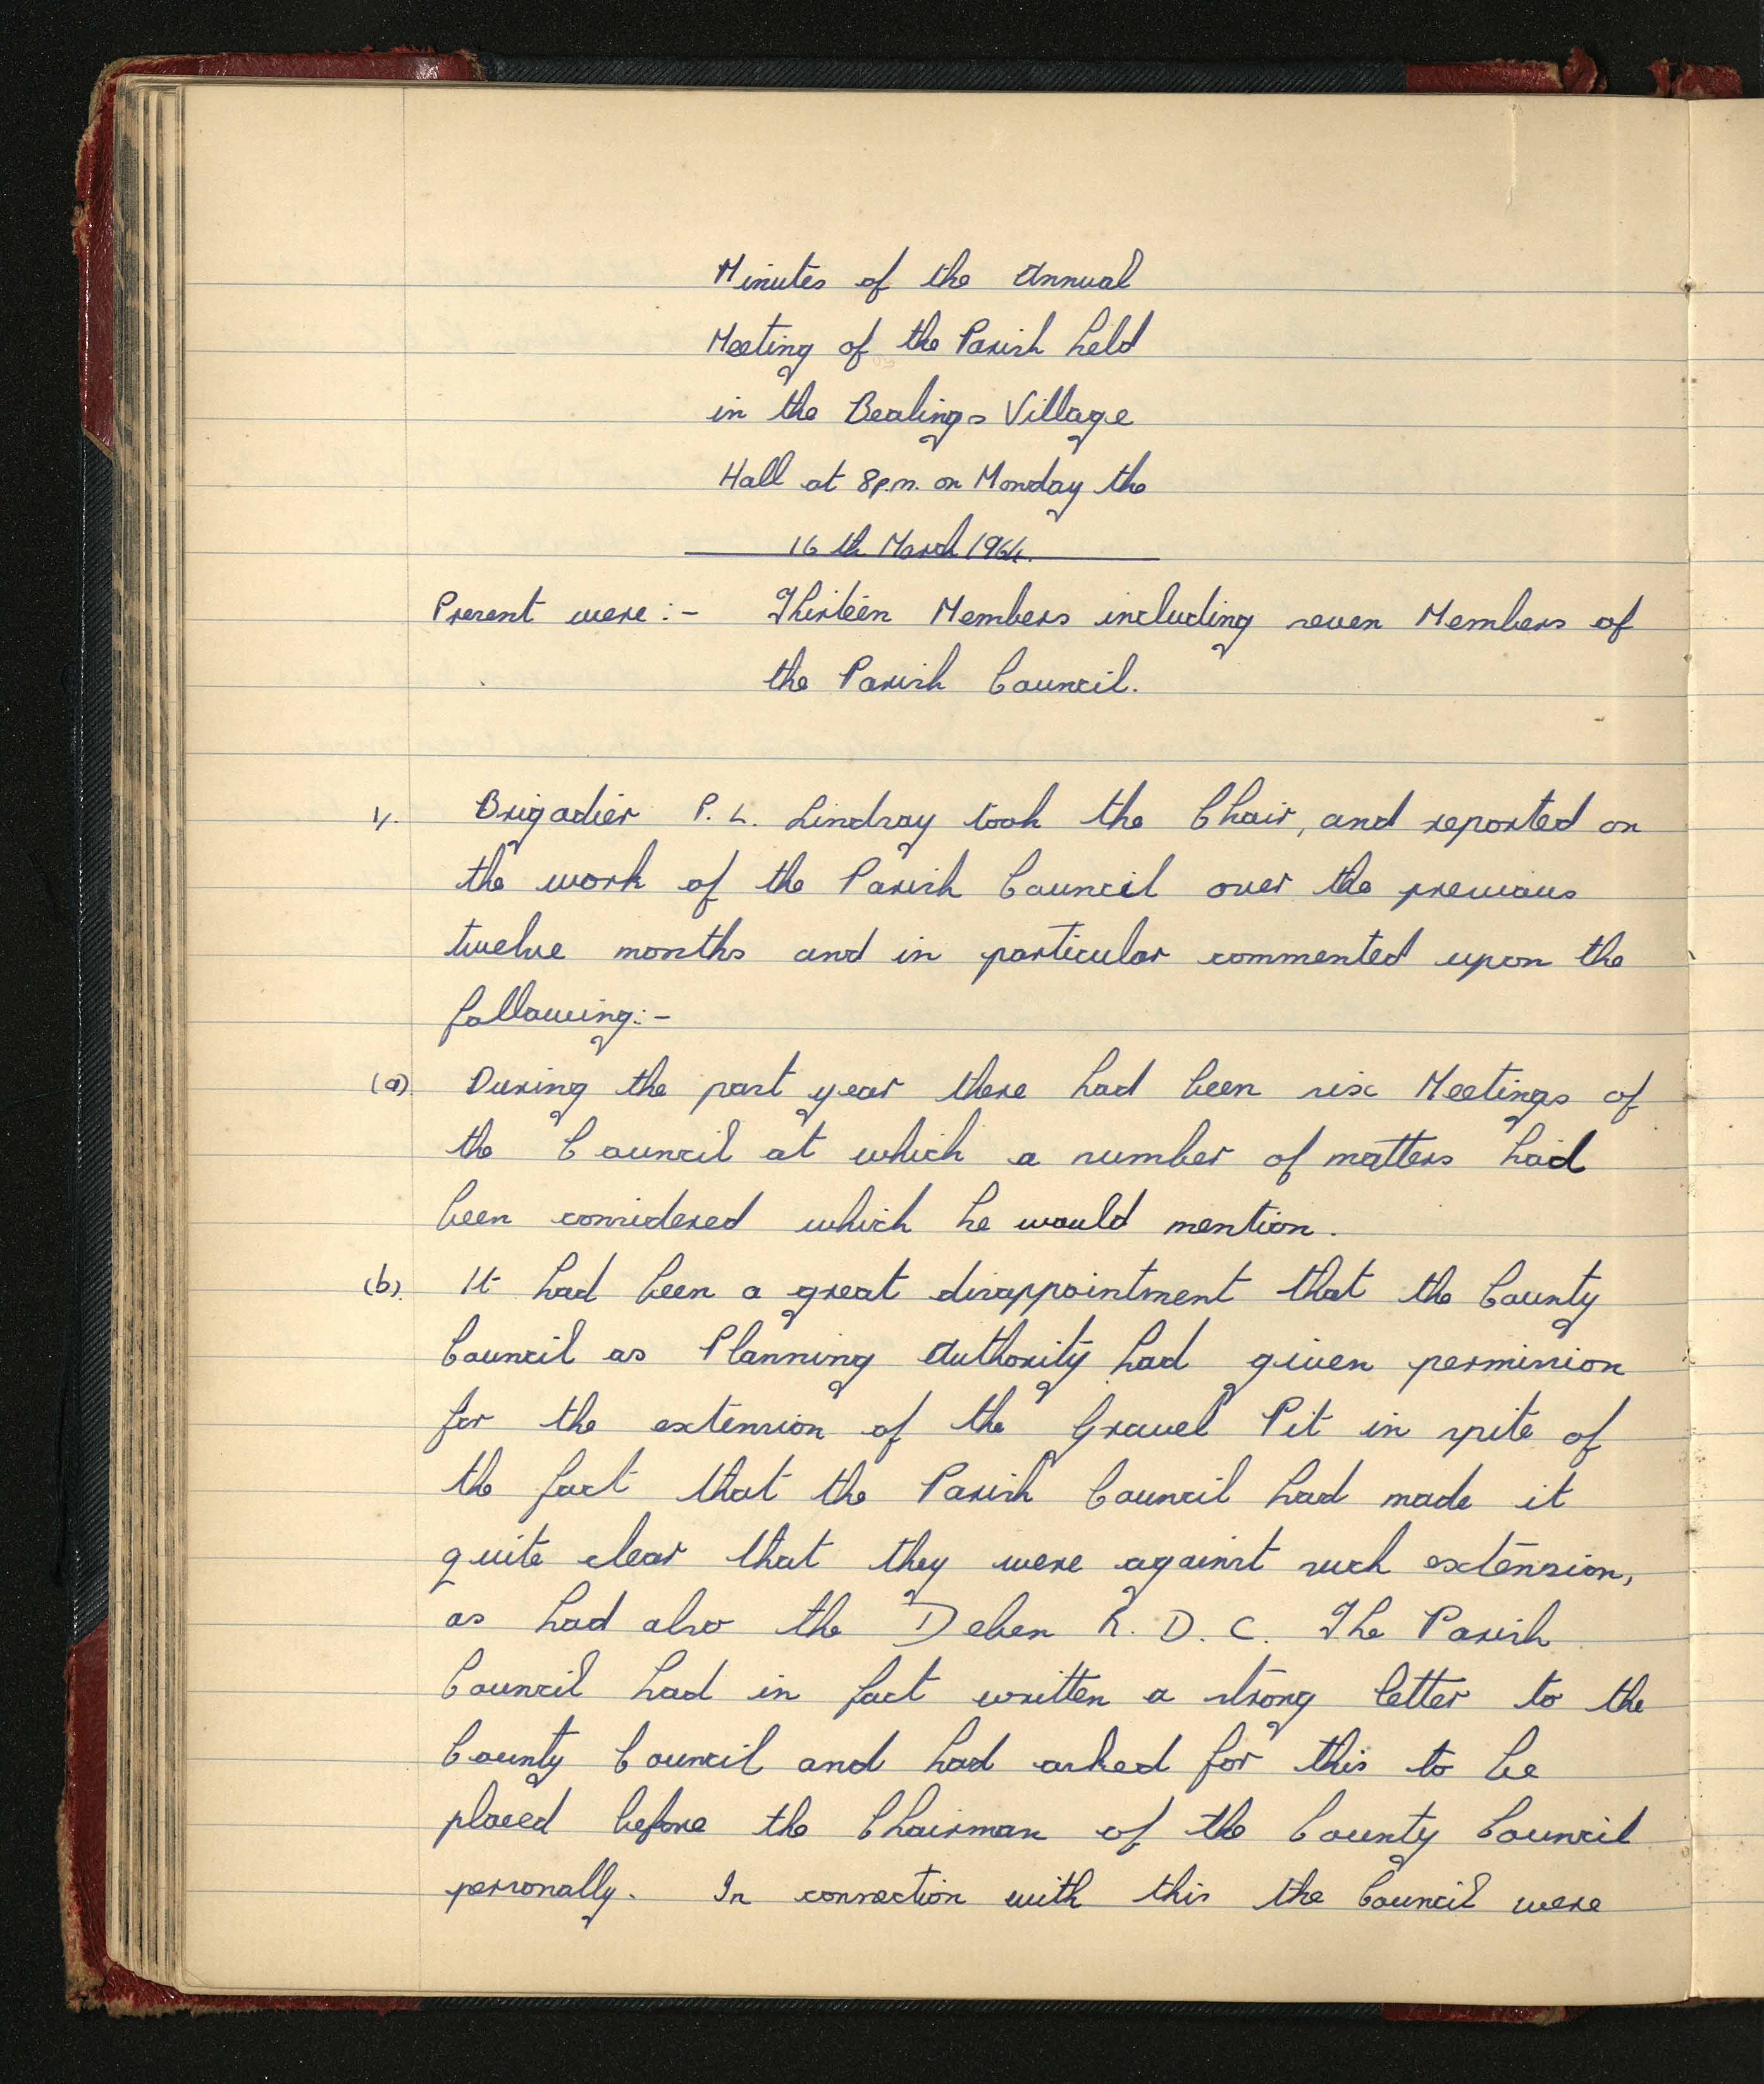 Minutes of the Annual
Meeting of the Parish held
in the Bealings Village
Hall at 8p.m. on Monday the
16th March 1964.
Present were :- Thirteen Members including seven Members of
the Parish Council.
1/. Brigadier P. L. Lindsay took the Chair, and reported on
the work of the Parish Council over the previous
twelve months and in particular commented upon the
following:-
(a) During the past year there had been six Meetings of
the Council at which a number of matters had
been considered which he would mention.
(b) It had been a great disappointment that the County
Council as Planning Authority had given permission
for the extension of the Gravel Pit in spite of
the fact that the Parish Council had made it
quite clear that they were against such extension,
as had also the Deben R. D. C. The Parish
Council had in fact written a strong letter to the
County Council and had asked for this to be
placed before the Chairman of the County Council
personally. In connection with this the Council were